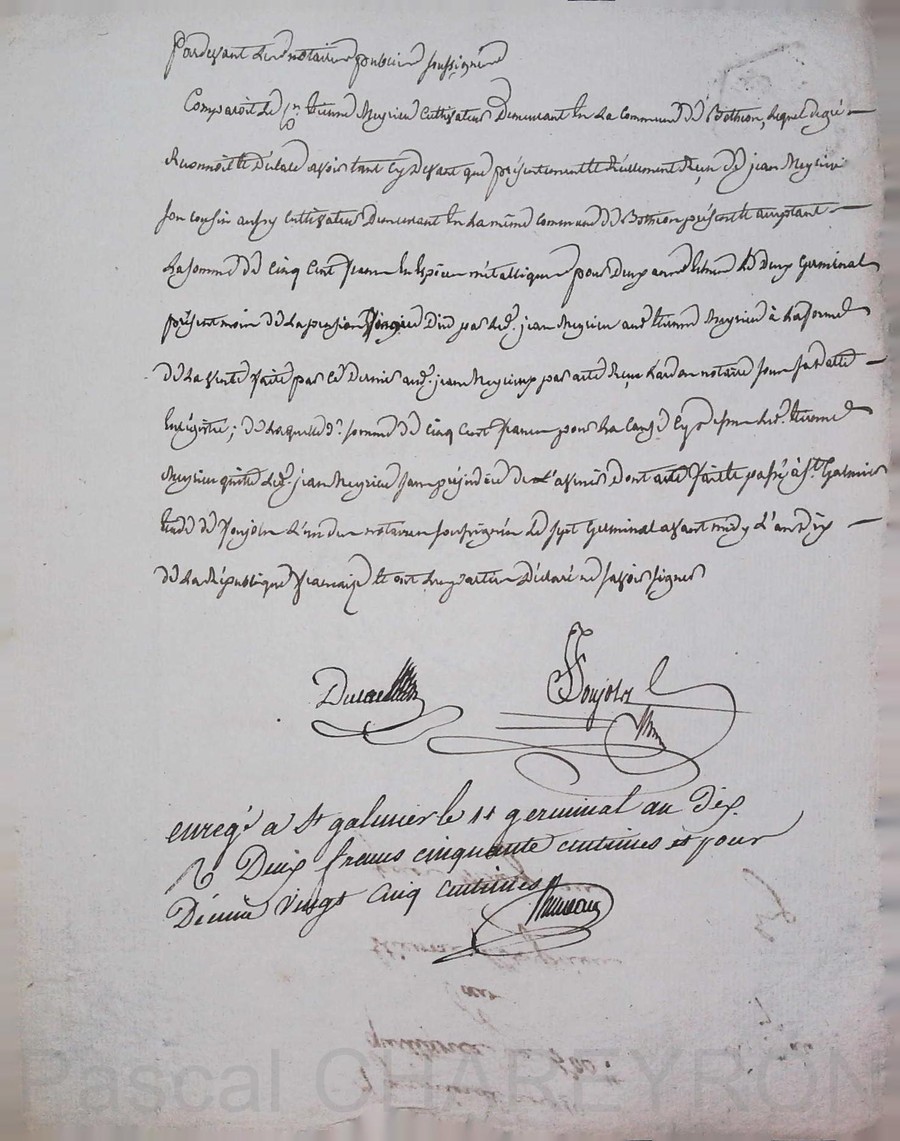 Pardevant les notaires publics soussignés
Comparoit le cn. Etienne Meyrieu Cultivateur Demeurant En La Commune de Bothéon, lequel de gré
Reconnoit et Déclare avoir tant cy Devant que présentement et Réellement Reçu de jean Meyrieu
son cousin aussy Cultivateur Demeurant En La même Commune de Bothéon présent et acceptant
La somme de Cinq Cent francs En Espèces métalliques pour Deux années échues le deux Germinal
présent mois de La pension viagère Due par Led. jean Meyrieu aud. Etienne Meyrieu à La forme
de La vente faite par Ce Dernier aud. jean Meyrieu par acte Reçu notaire sous sa datte
Enrégistré; de Laquelle d. somme de Cinq Cent francs pour La Cause Cy dessus Led. Etienne
Meyrieu quitte Led. jean Meyrieu sans préjudice de L'avenir dont acte fait et passé à St. Galmier
Etude de Ponjols L'un des notaires soussignés Le sept Germinal avant midy L'an dix
de La République française Et ont Les parties Déclaré ne savoir signer
Ponjols
enregé a St galmier le 11 germinal an Dix
R Deux francs cinquante centimes et pour
Décime vingt cinq centimes
Etienne
quittance 500.
Pascal CHAREYRON